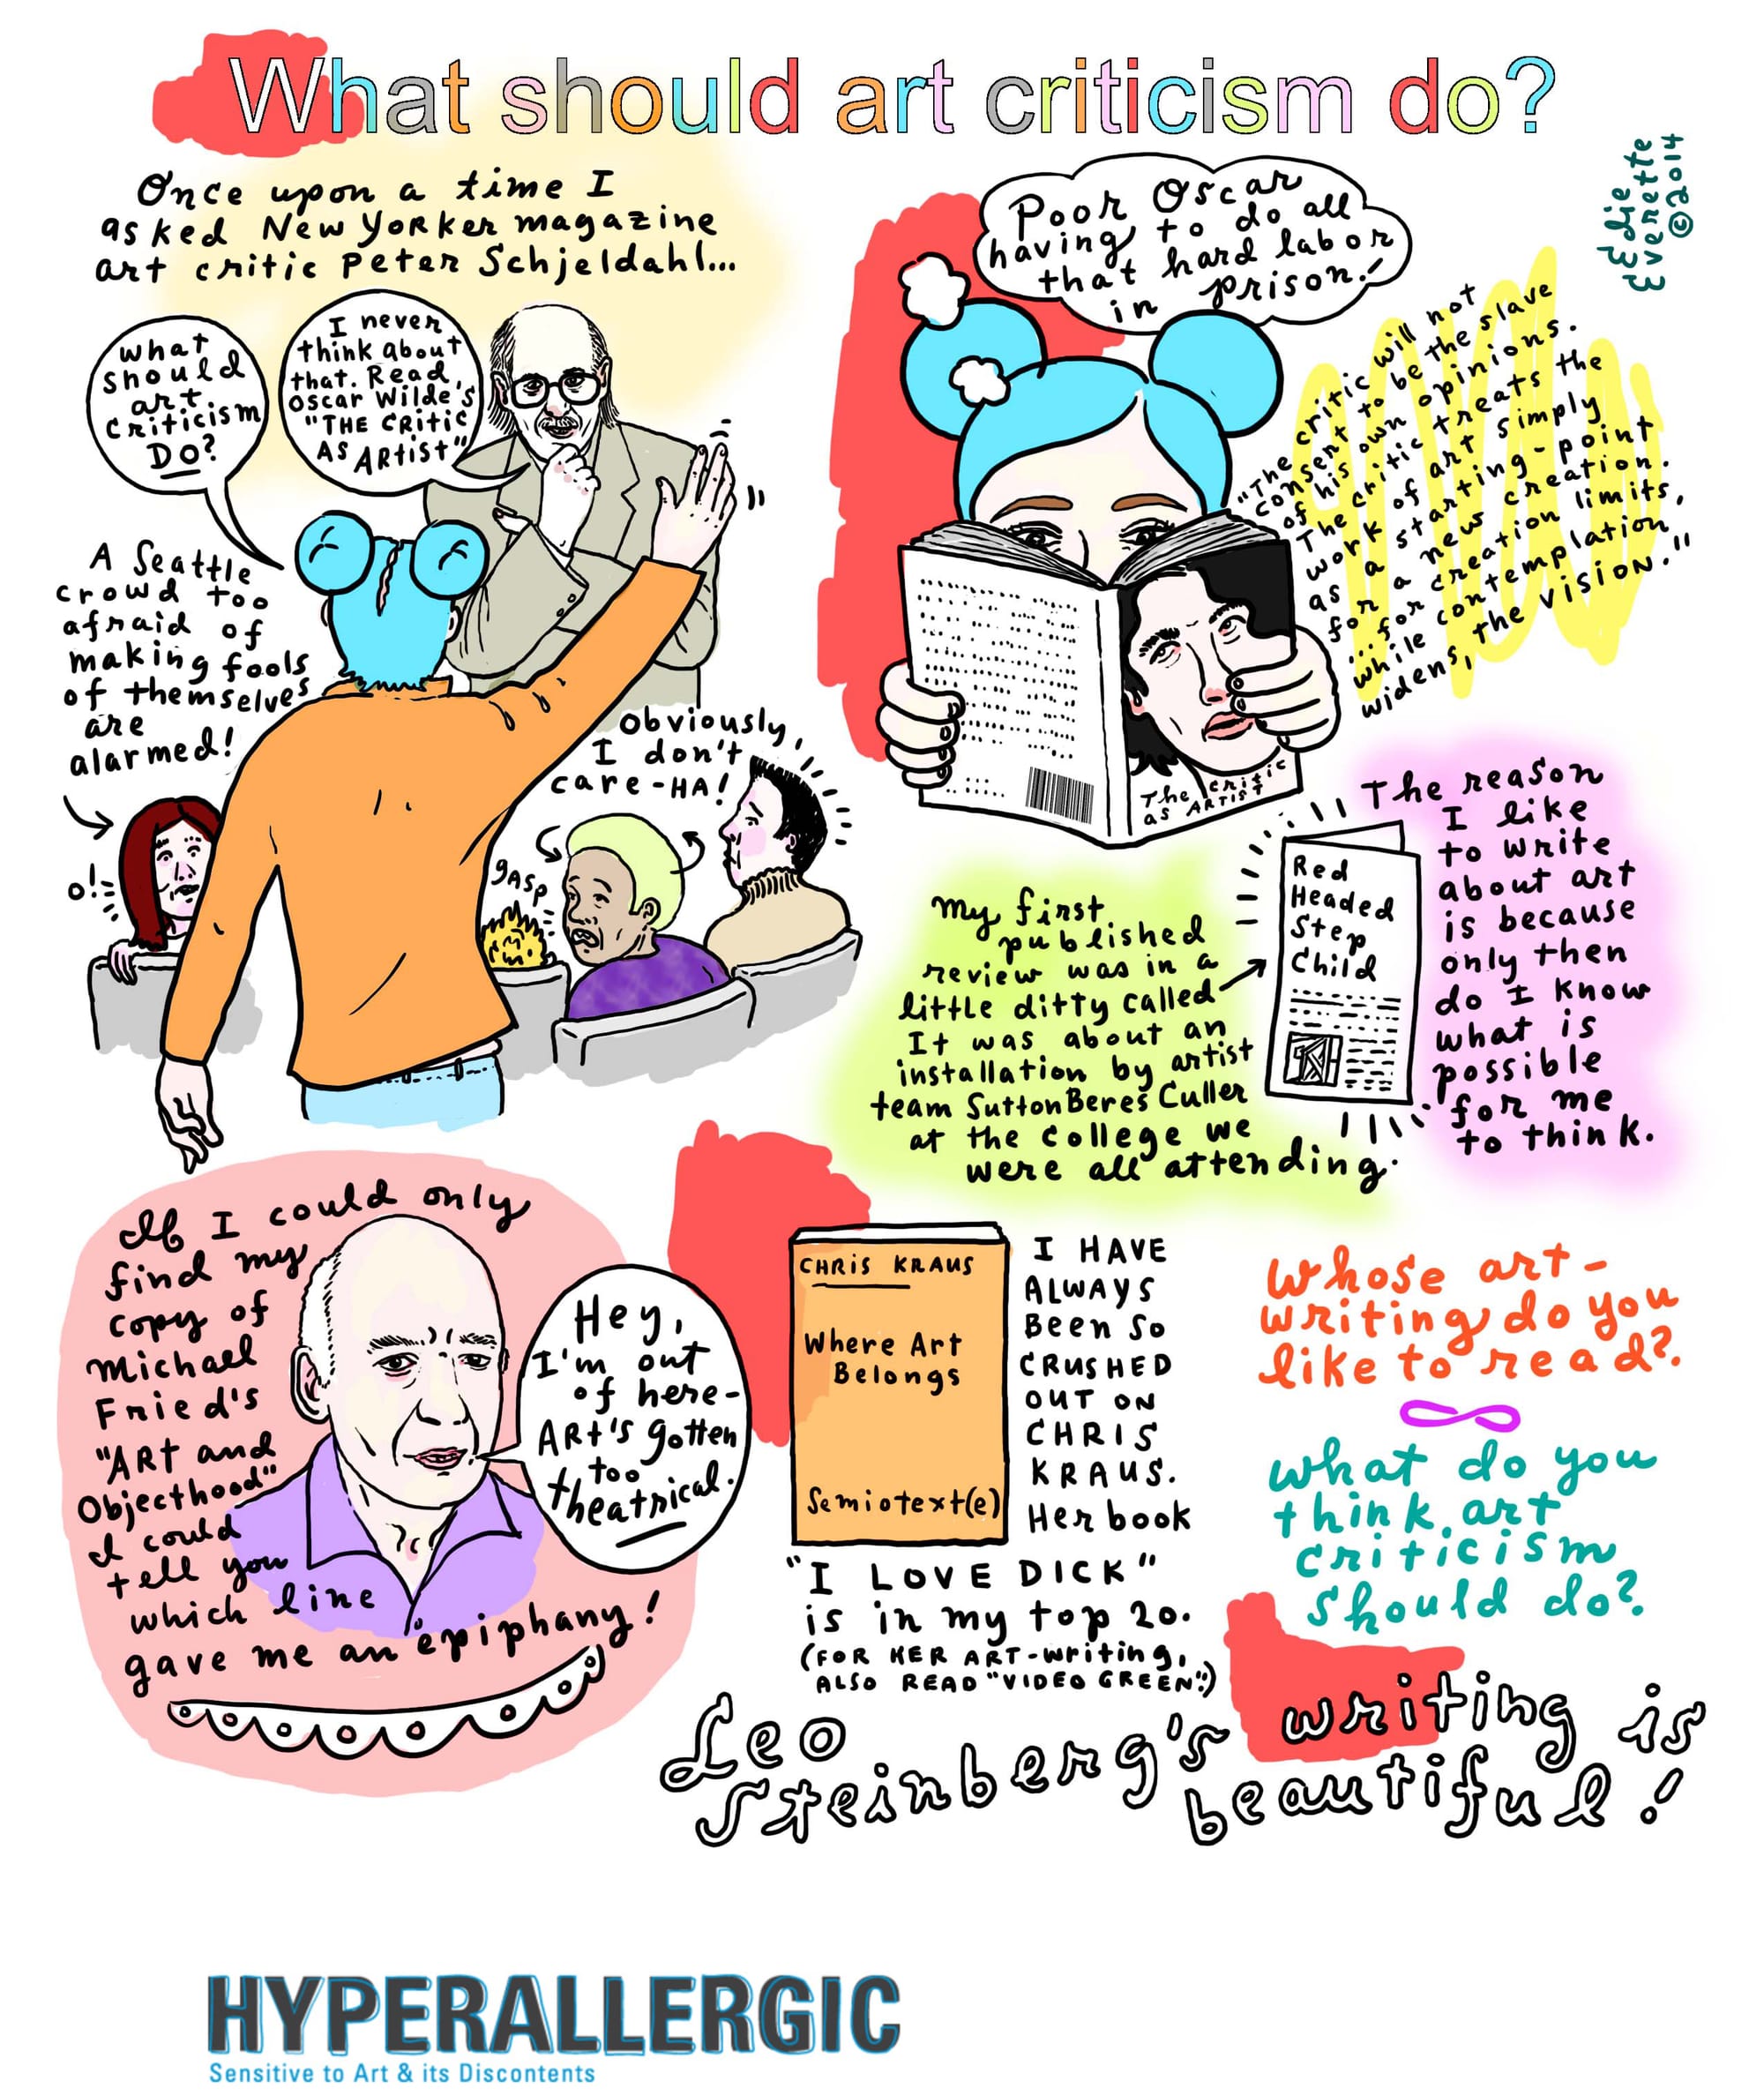 What should art criticism do?
Edie
Everette
©2014
Once upon a time I
asked New Yorker magazine
art critic Peter Schjeldahl...
What
should
art
criticism
DO?
I never
think about
that. Read
Oscar Wilde's
"THE CRITIC
AS ARTIST"
A Seattle
crowd too
afraid of
making fools
of themselves
are
alarmed!
o!
gasp
obviously,
I don't
care-HA!
Poor Oscar
having to do all
that hard labor
in prison!
"The critic will not
consent to be the slave
of his own opinions.
The critic treats the
work of art simply
as a starting-point
for a new creation.
...for creation limits,
while contemplation
widens, the vision."
The critic
as ARTIST
My first
published
review was in a
little ditty called
It was about an
installation by artist
team SuttonBeresCuller
at the college we
were all attending.
Red
Headed
Step
Child
The reason
I like
to write
about art
is because
only then
do I know
what is
possible
for me
to think.
If I could only
find my
copy of
Michael
Fried's
"ART and
Objecthood"
I could
tell you
which line
gave me an epiphany!
Hey,
I'm out
of here-
ART's gotten
too
theatrical.
CHRIS KRAUS
Where Art
Belongs
Semiotext(e)
I HAVE
ALWAYS
Been So
CRUSHED
OUT ON
CHRIS
KRAUS.
Her book
"I LOVE DICK"
is in my top 20.
(FOR HER ART-writing,
ALSO READ "VIDEO GREEN".)
Whose art-
writing do you
like to read?
What do you
think art
criticism
should do?
Leo
Steinberg's
writing is
beautiful!
HYPERALLERGIC
Sensitive to Art & its Discontents